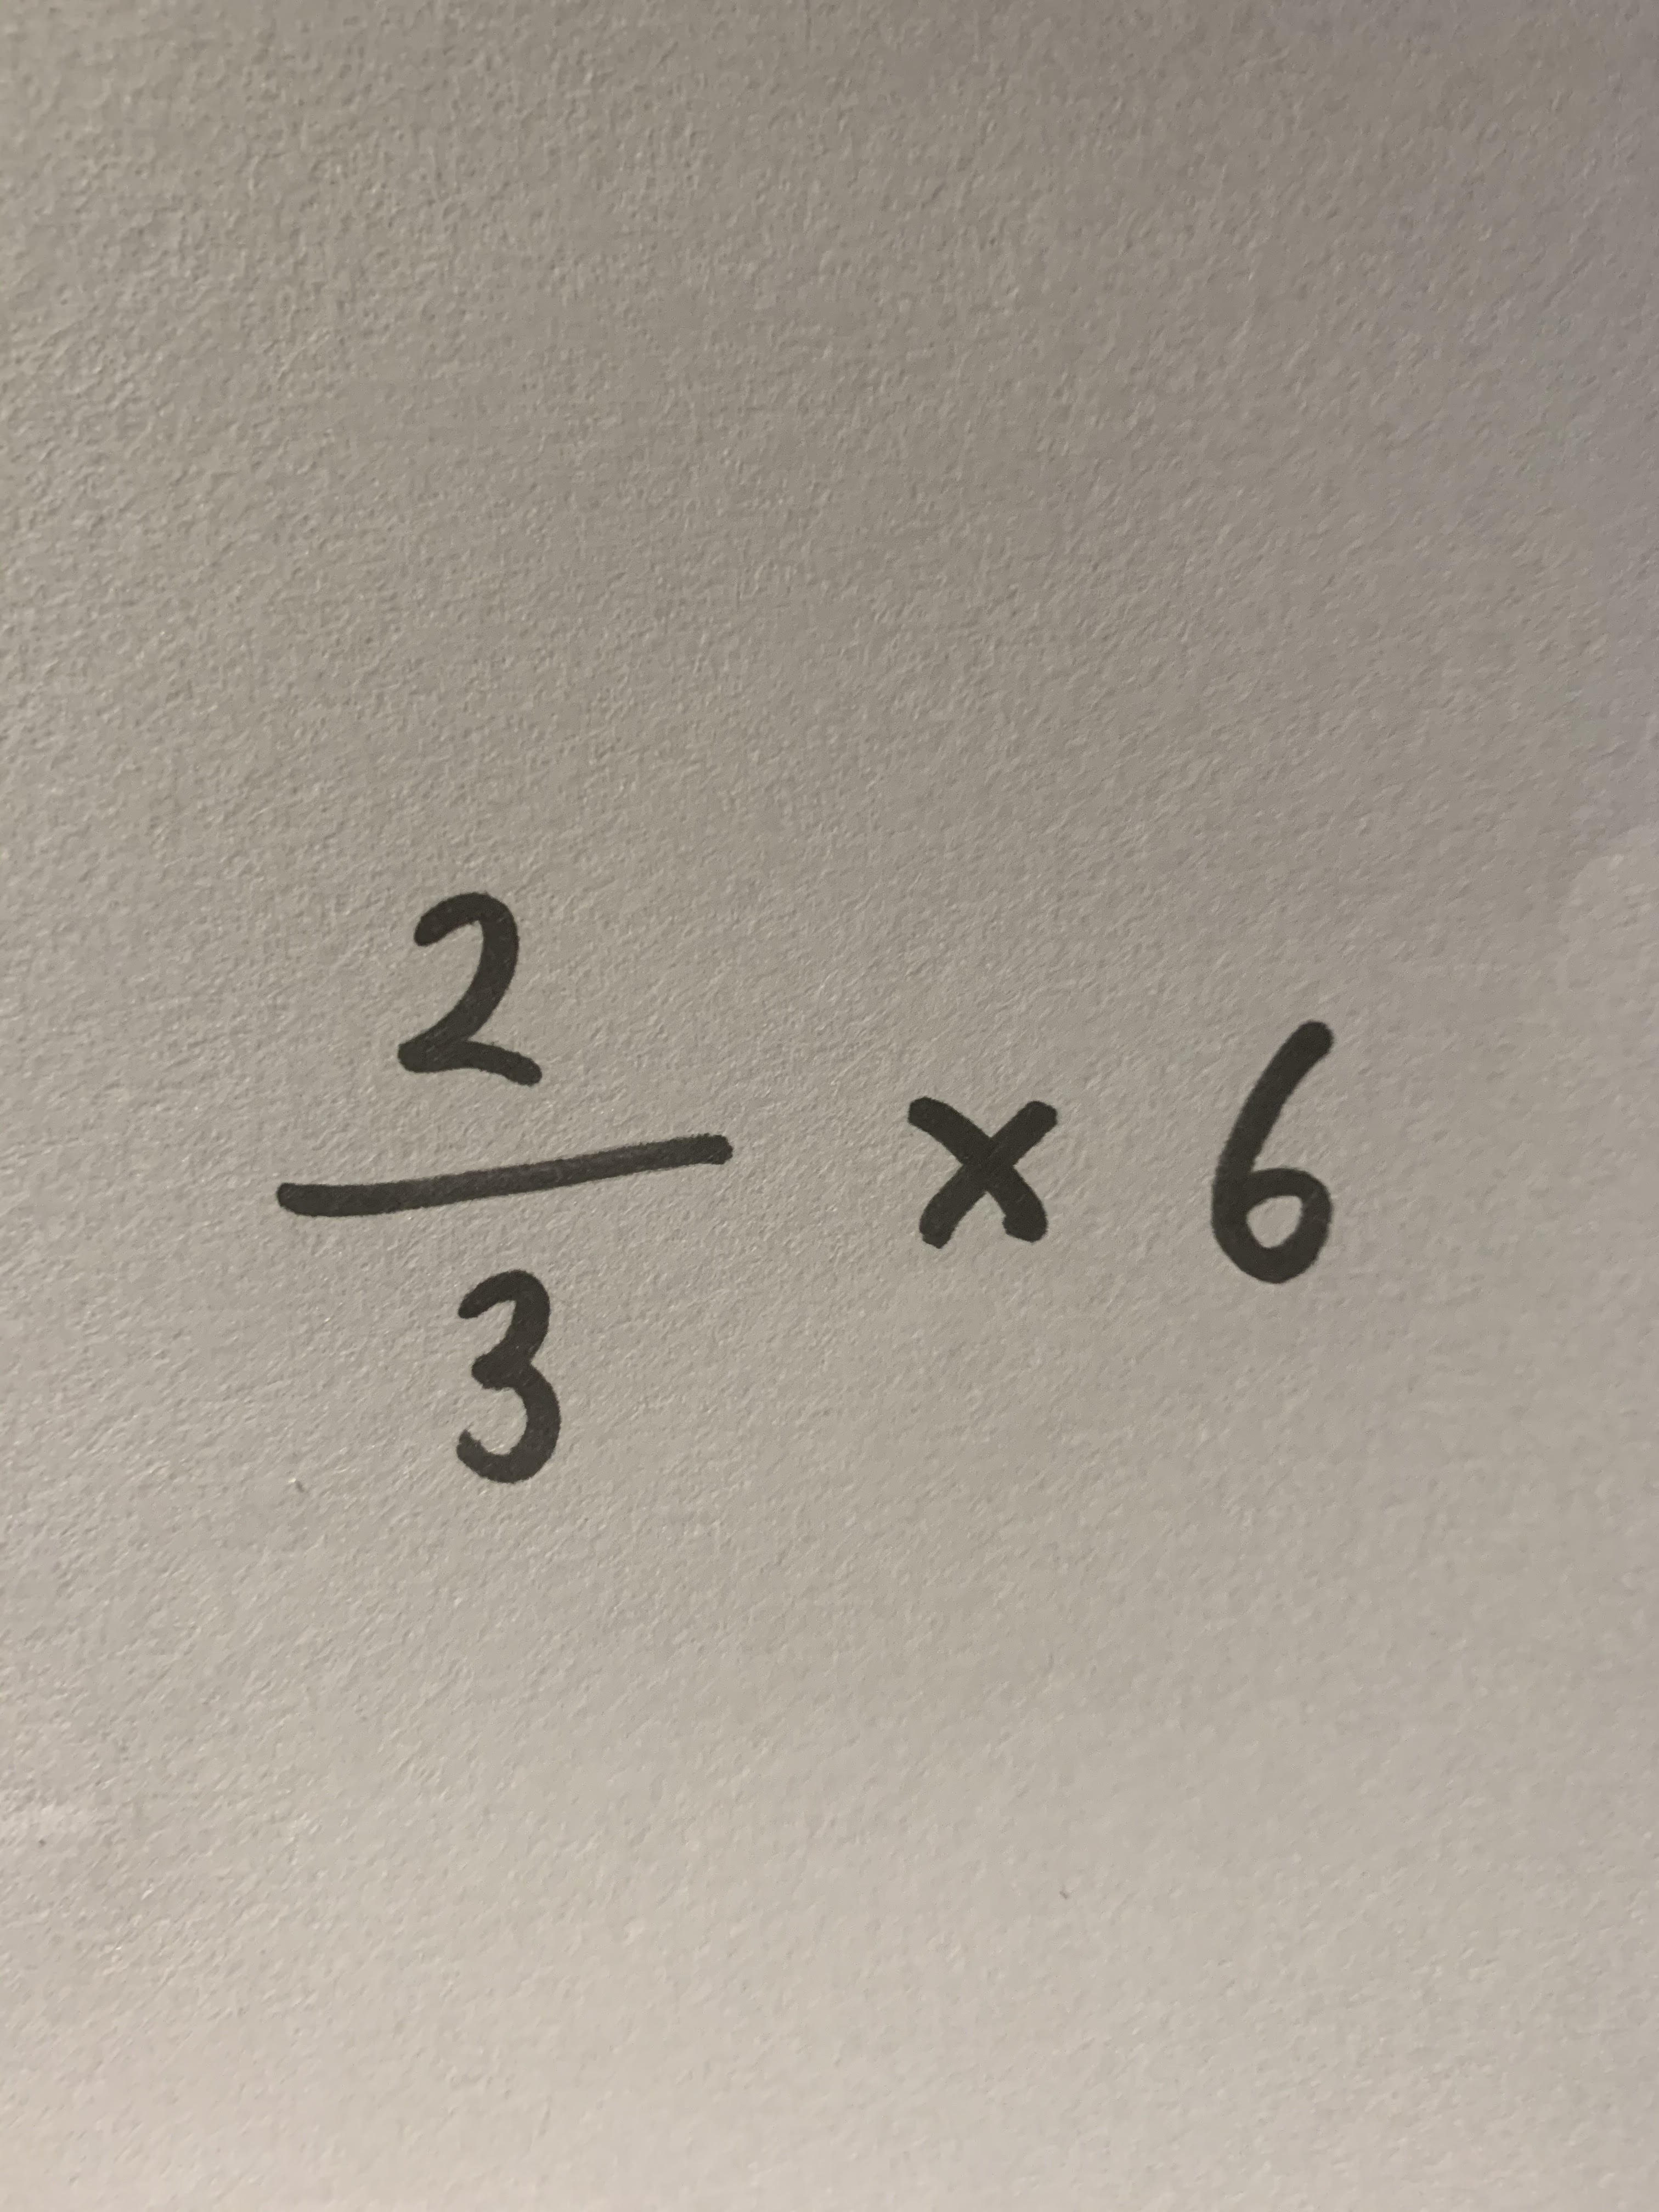 2/3 × 6